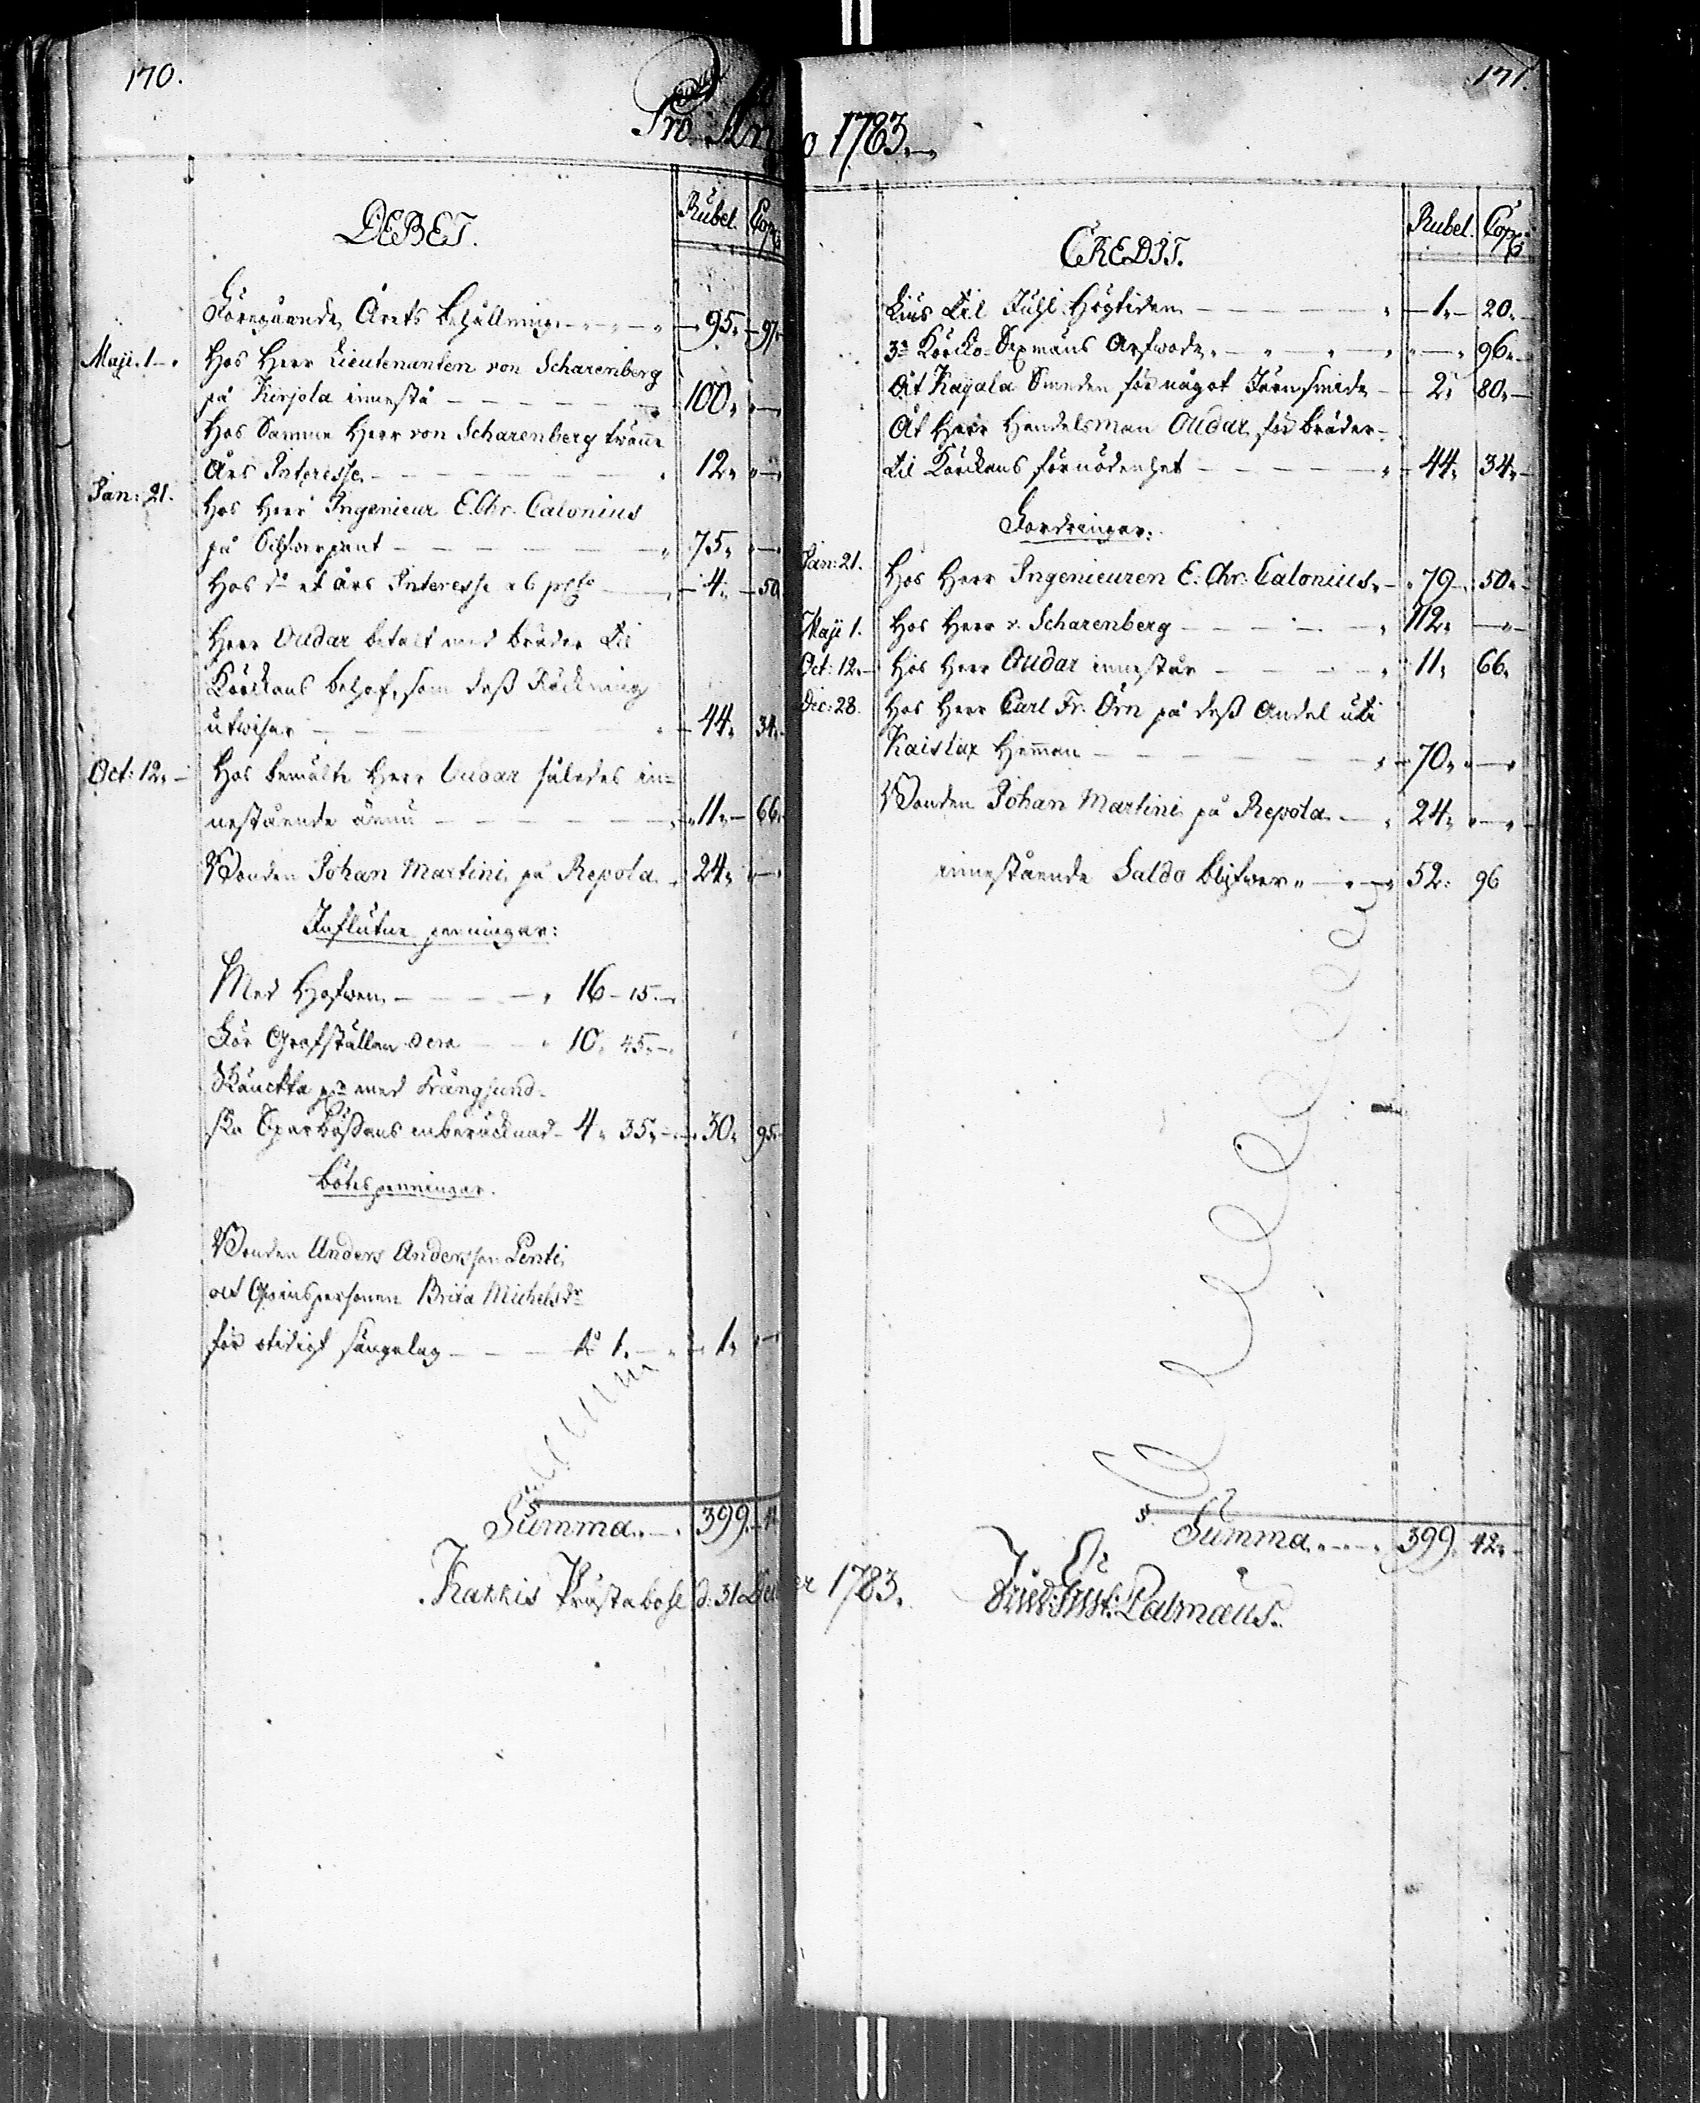 170.
Pro Ann
DEBET.
Rubel. Cop:
Föregående Årets behållning 95. 97.
Maji. 1. Hos Herr Lieutenanten von Scharenberg
på Kirjola innestå 100.
Hos Samme Herr von Scharenberg twänne
Års Interesse 12.
Jan: 21. Hos Herr Ingenieur E. Chr. Calonius
på Silfwerpant 75.
Hos do et års Interesse a 6 pCto 4. 50.
Herr Oudar betalt med bräder til
Körckans behof, som dess Räckning
utwisar 44. 34.
Oct: 12. Hos bemälte Herr Oudar således in-
nestående ännu 11. 66.
Bonden Johan Martini på Repola 24.
Influtne penningar:
Med Hofwen 16 - 15.
För Grafställen dera 10. 45.
Skänckta med Trångsund-
ska Sparbössans inberäcknad 4. 35. 30. 95.
Bötespenningar.
Bonden Anders Andersson Penti
och Qwinspersonen Brita Michelsdr
för otidigt sängelag 1. 1.
Summa. 399.
Kakkis Prästabohl d. 31 Dec
171.
o 1783.
CREDIT.
Rubel. Cop:
Lius til Juhl Högtiden 1. 20.
3n Körcko-Sexmäns Arfwode 96.
Åt Kayala Smeden för något Järnsmide 2. 80.
Åt Herr Handelsman Oudar för bräder
til Körckans förnödenhet 44. 34.
Fordringar:
Jan: 21. Hos Herr Ingenieuren E: Chr: Calonius. 79. 50.
Maji 1. Hos Herr v. Scharenberg 112.
Oct: 12. Hos Herr Oudar innestår 11. 66.
Dec: 28. Hos Herr Carl Fr. Örn på dess Andel uti
Kaislax Hemman 70.
Bonden Johan Martini på Repola 24.
innestående Saldo blifwer 52. 96
Summa. 399. 42.
er 1783. Palmæus.